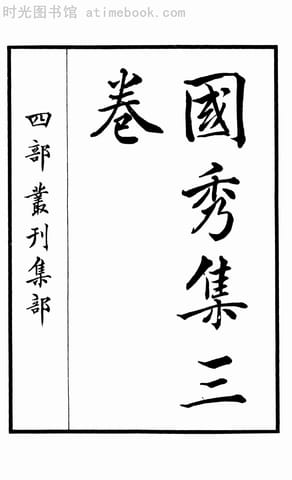 时光图书馆 · atimebook.com
國秀集三
卷
四部叢刊集部